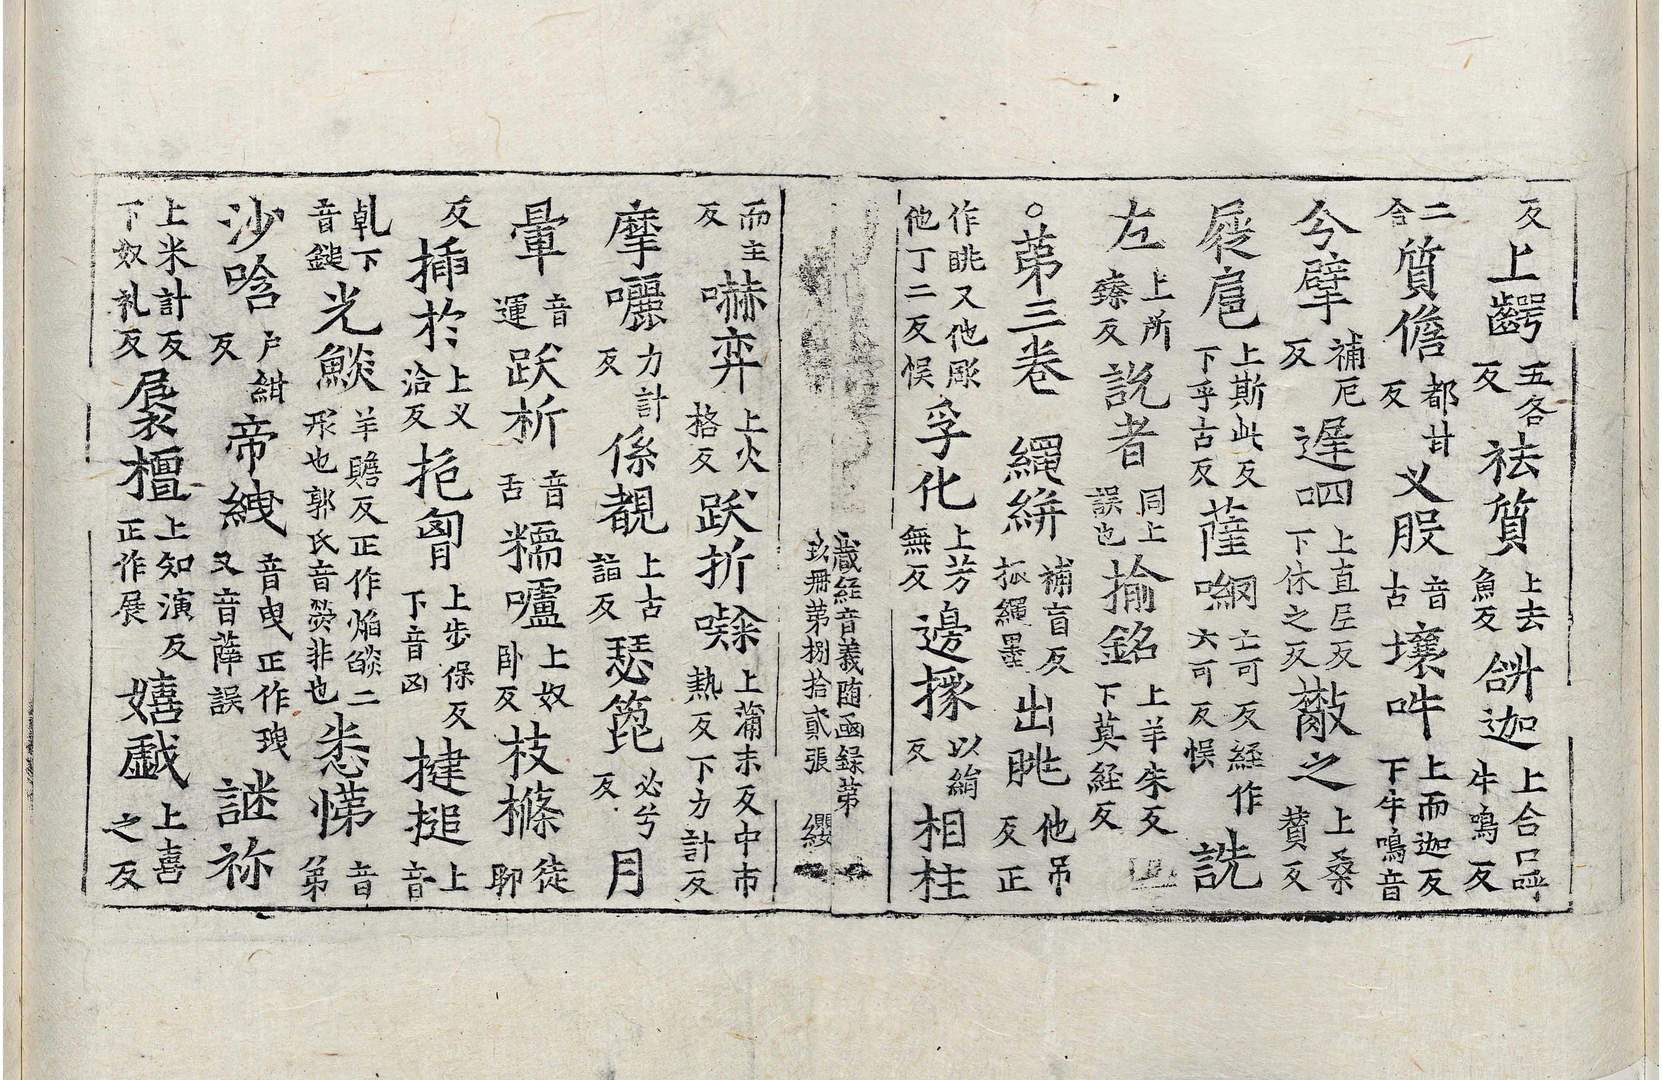 反上齶五各反袪質上去魚反合牛迦上合口呼牛鳴反
二合質儋都甘反义股音古壤吽上而迦反下牛鳴音
兮擘補厄反遲呬上直尼反下休之反擞之上桑賛反
屣扈上斯此反下乎古反薩嚩亡可反経作大可反悮詵
左上所臻反説者同上誤也揄銘上羊朱反下莫経反
○苐三卷 繩絣補盲反振繩墨出眺他吊反正
作眺又他彫他丁二反悮孚化上芳無反邊掾以絹反相柱
藏経音義随函録第玖冊第捌拾貳張 纓
而主反嚇弈上火格反跃折㘑上蒲末反中市熱反下力計反
摩囇力計反係覩上古詣反瑟箆必兮反月
暈音運跃析音舌糯嚧上奴卧反枝樤徒聊
反揷於上义洽反抱匈上步保反下音凶揵搥上音
乹下音鎚光㷋羊贍反正作焔㷋二形也郭氏音熒非也悉悌音弟
沙唅户紺反帝絏音曳正作㻔又音薛誤謎祢
上米計反下奴礼反展檀上知演反正作展嬉戯上喜之反